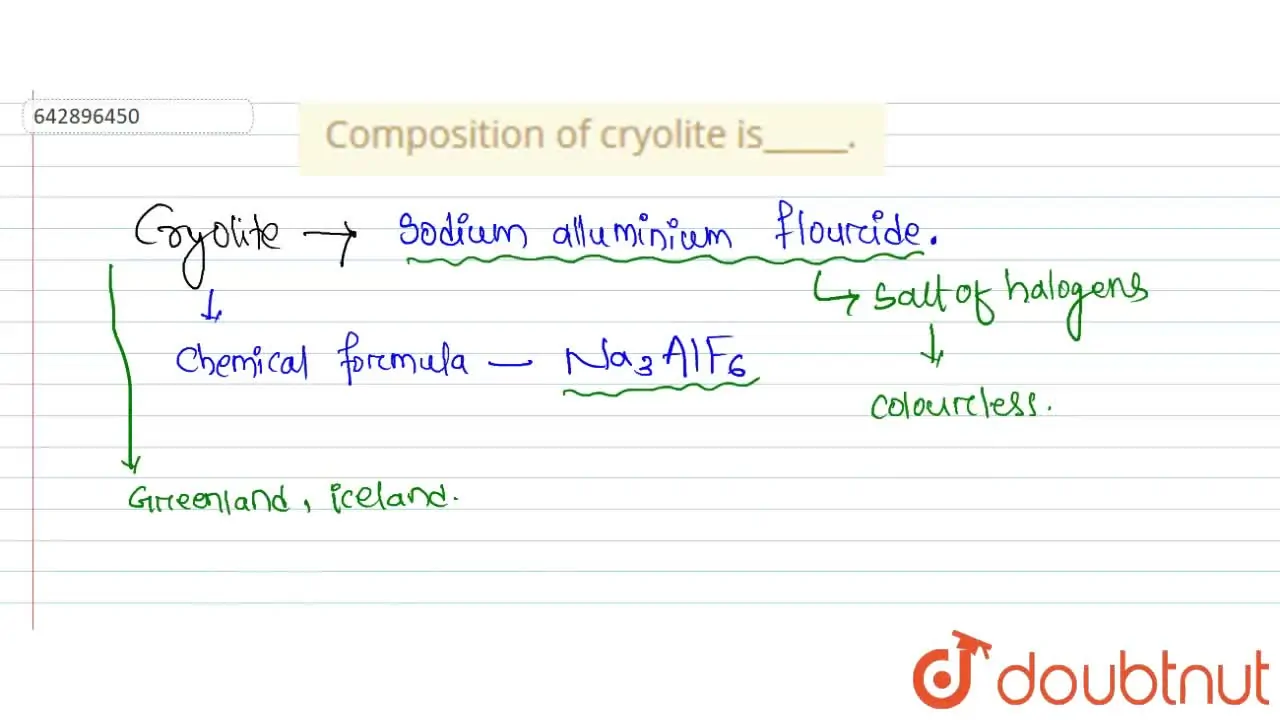 642896450
Composition of cryolite is_____.
Cryolite → Sodium alluminium flouride.
↳ Salt of halogens
↓
↓
Chemical formula — Na₃AlF₆
Colourless.
Greenland, iceland.
doubtnut